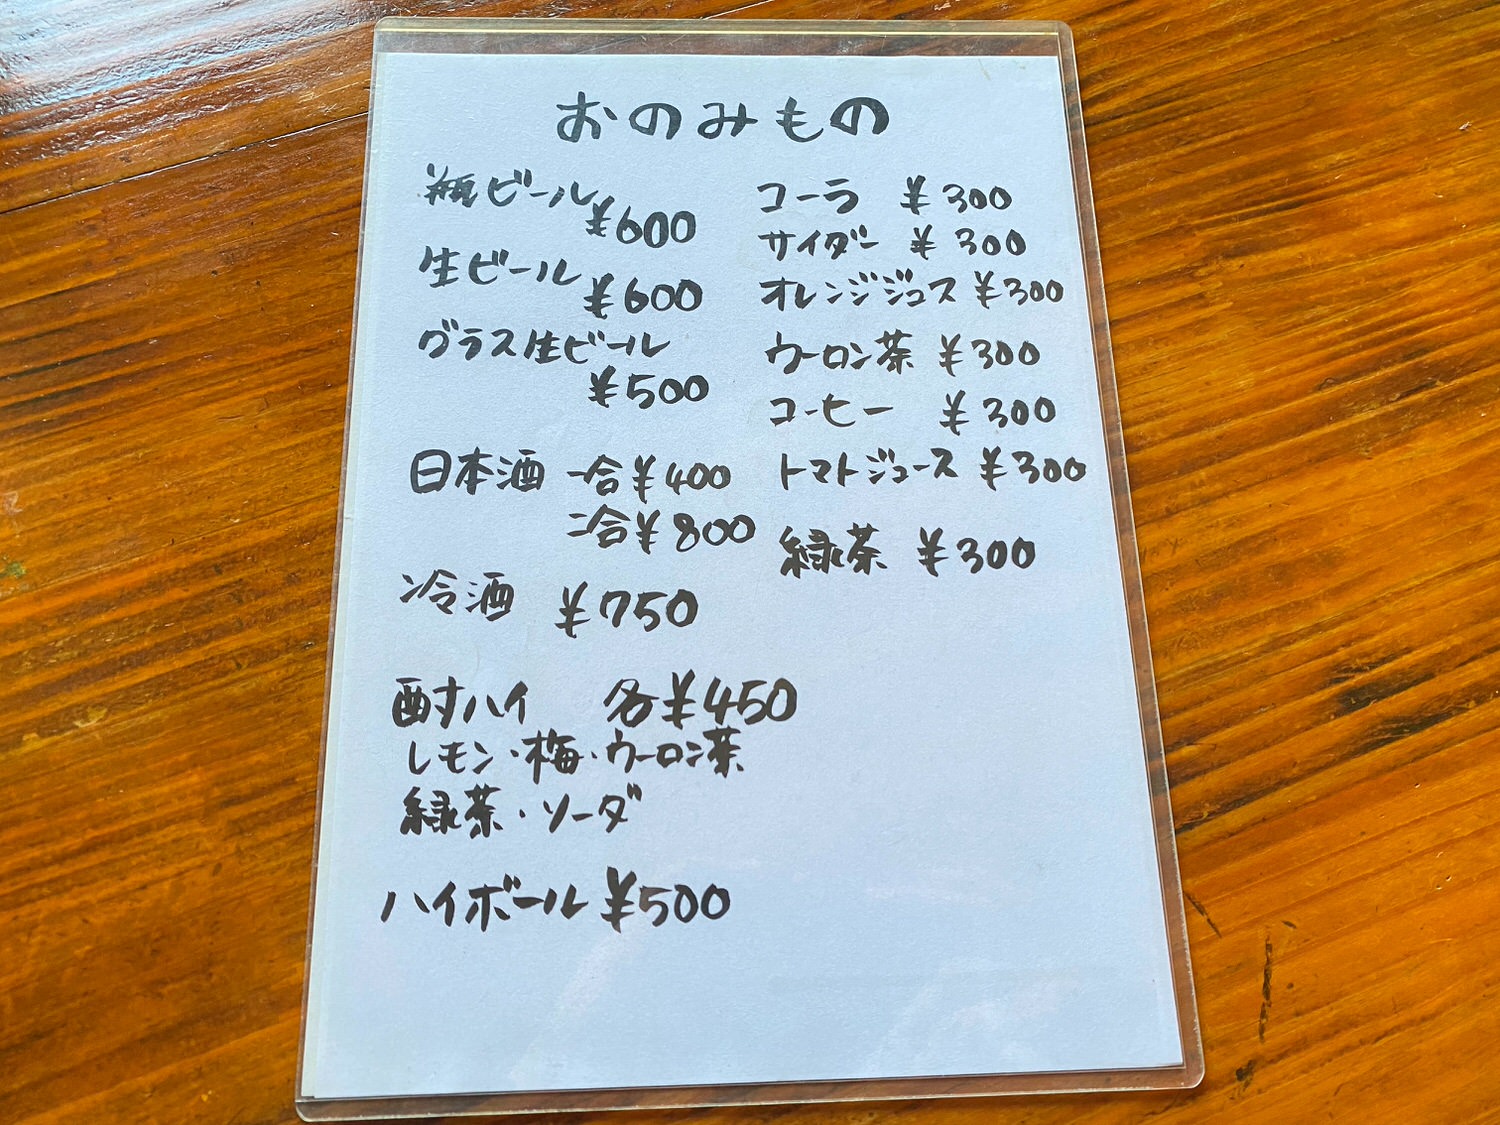 おのみもの
瓶ビール
¥600
生ビール
¥600
グラス生ビール
¥500
日本酒 一合¥400
二合¥800
冷酒 ¥750
酎ハイ 各¥450
レモン・梅・ウーロン茶
緑茶・ソーダ
ハイボール ¥500
コーラ ¥300
サイダー ¥300
オレンジジュース ¥300
ウーロン茶 ¥300
コーヒー ¥300
トマトジュース ¥300
緑茶 ¥300